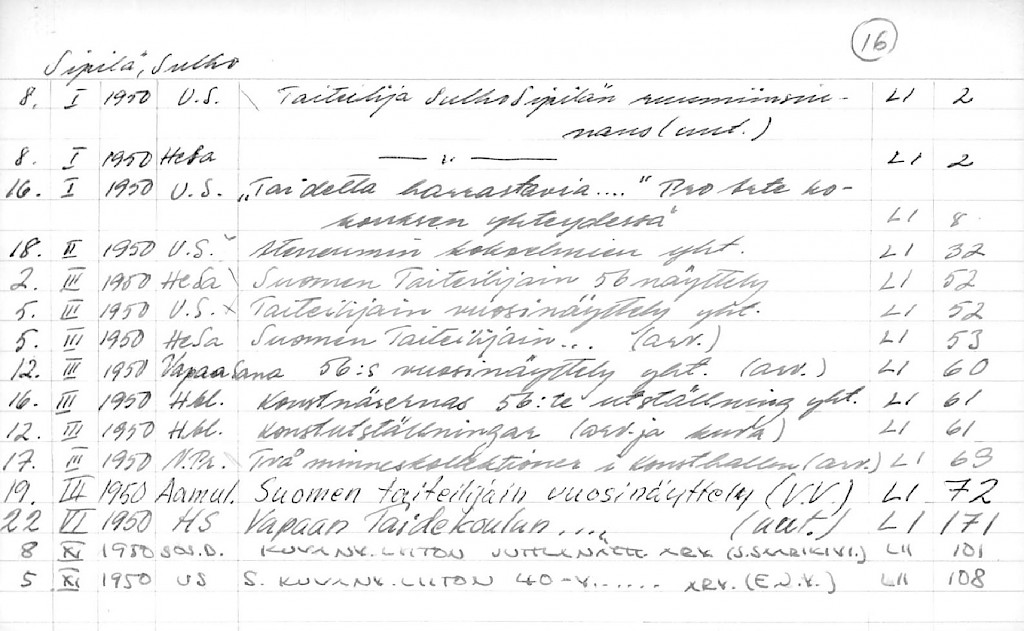 16
Sipilä, Sulho
8. I 1950 U.S. Taiteilija Sulho Sipilän ruumiinsiu-
naus (uut.) LI 2
8. I 1950 HeSa — " — LI 2
16. I 1950 U.S. "Taidetta harrastavia...." Pro Arte ko-
kouksen yhteydessä LI 8
18. II 1950 U.S. Ateneumin kokoelmien yht. LI 32
2. III 1950 HeSa Suomen Taiteilijain 56 näyttely LI 52
5. III 1950 U.S. Taiteilijain vuosinäyttely yht. LI 52
5. III 1950 HeSa Suomen Taiteilijain... (arv.) LI 53
12. III 1950 Vapaa Sana 56:s vuosinäyttely yht. (arv.) LI 60
16. III 1950 Hbl. Konstnärernas 56:te utställning yht. LI 61
12. III 1950 Hbl. Konstutställningar (arv. ja kuva) LI 61
17. III 1950 N.Pr. Två minneskollektioner i Konsthallen (arv.) LI 63
19. III 1950 Aamul. Suomen taiteilijain vuosinäyttely (V.V.) LI 72
22 VI 1950 HS Vapaan Taidekoulun.... (uut.) LI 171
8 XI 1950 SOS.D. KUVANV. LIITON JUHLANÄTT. ARV. (S.SARIKIVI.) LII 101
5 XI 1950 US S. KUVANV. LIITON 40-V...... ARV. (E.J.V.) LII 108